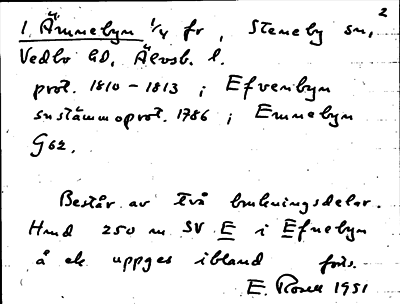 2
1. Ämnebyn 1/4 fr, Steneby sn,
Vedbo hd, Älvsb. l.
prot. 1810 - 1813 ; Efvenbyn
snstämmoprot. 1786 ; Emnebyn
G62.
Består av två brukningsdelar.
Hmd 250 m SV E i Efnebyn
å ek uppges ibland förs.
E. Rosell 1951